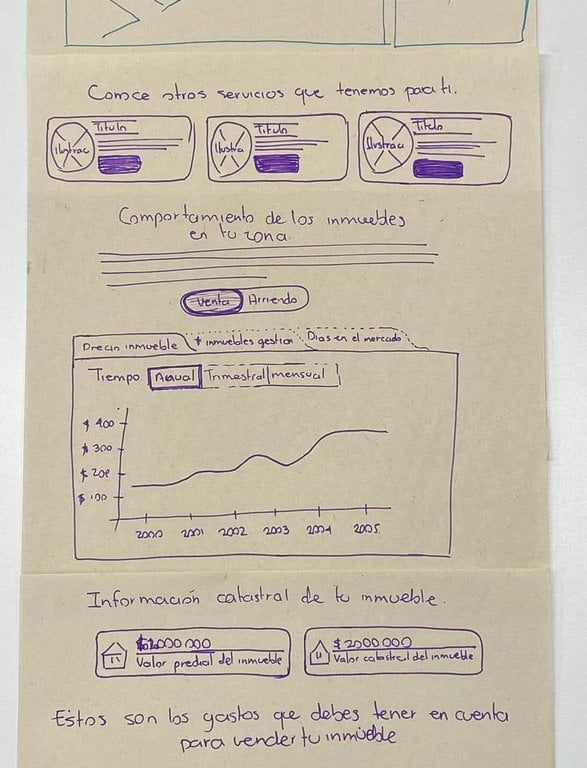 Conoce otros servicios que tenemos para ti.
Titulo
Ilustrac
Titulo
Ilustra
Titulo
Ilustrac
Comportamiento de los inmuebles
en tu zona.
Venta Arriendo
Precio inmueble # inmuebles gestion Dias en el mercado
Tiempo Anual Trimestral mensual
$ 400
$ 300
$ 200
$ 100
2000 2001 2002 2003 2004 2005
Información catastral de tu inmueble.
000 000
Valor predial del inmueble
$ 2000 000
Valor catastral del inmueble
Estos son los gastos que debes tener en cuenta
para vender tu inmueble